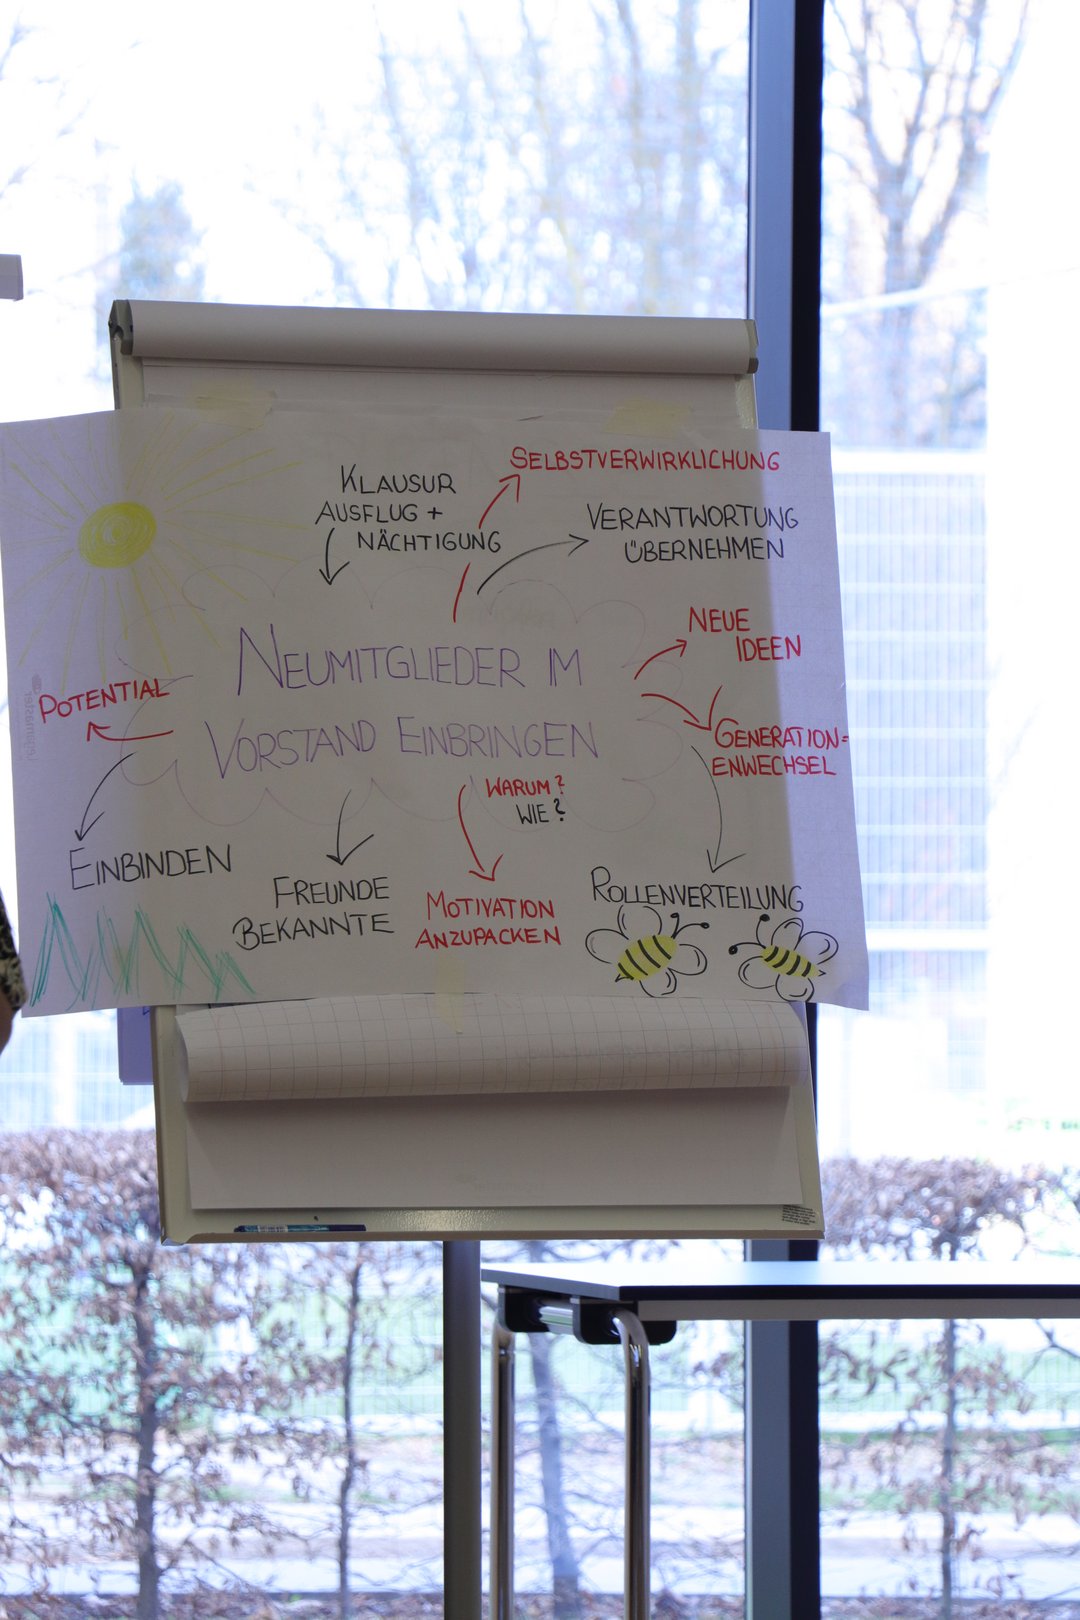 SELBSTVERWIRKLICHUNG
KLAUSUR
AUSFLUG +
NÄCHTIGUNG
VERANTWORTUNG
ÜBERNEHMEN
NEUE
IDEEN
NEUMITGLIEDER IM
VORSTAND EINBRINGEN
POTENTIAL
GENERATION=
ENWECHSEL
WARUM?
WIE?
EINBINDEN
FREUNDE
BEKANNTE
MOTIVATION
ANZUPACKEN
ROLLENVERTEILUNG